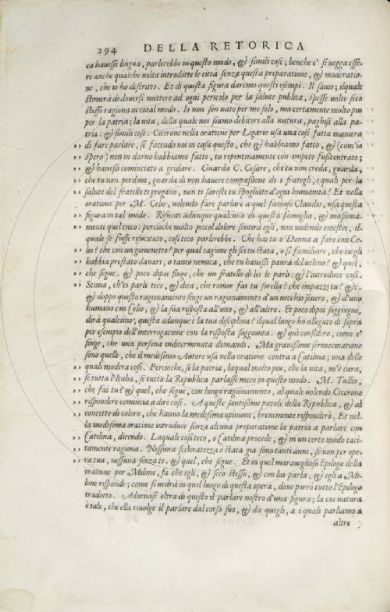 294 DELLA RETORICA
ca hauesse lingua, parlerebbe in questo modo, & simili cose; benche e' si uegga esse-
re anche qualche uolta introdotte le città senza questa preparatione, & moderatio-
ne, che io ho discritto. Et di questa figura daremo questi esempi. Il sauio; ilquale
stimerà di douersi mettere ad ogni pericolo per la salute publica, spesse uolte seco
stesso ragiona in cotal modo. Io non son nato per me solo, ma certamente molto piu
per la patria; la uita, della quale noi siamo debitori alla natura, paghisi alla pa-
tria. & simili cose. Cicerone nella oratione per Ligario usa una così fatta maniera
di fare parlare, si facendo noi in casa questo, che & habbiamo fatto, & (com'io
spero) non in darno habbiamo fatto, tu repentinamente con impeto fussi entrato;
& hauessi cominciato a gridare. Guarda C. Cesare, che tu non creda, guarda,
che tu non perdoni, guarda di non hauere compassione de i fratelli, i quali per la
salute del fratello ti pregono, non ti saresti tu spogliato d'ogni humanità? Et nella
oratione per M. Celio, uolendo fare parlare a quel famoso Claudio, usa questa
figura in tal modo. Risusciti adunque qualcuno di questa famiglia, & massima-
mente quel cieco; percioche molto piccol dolore sentirà egli, non uedendo costei, il-
quale se fusse risuscitato, così seco parlerebbe. Che hai tu o Donna a fare con Ce-
lio? che con un giouanetto? per qual cagione gli sei tu stata, o sì familiare, che tu gli
habbia prestato danari, o tanto nemica, che tu hauessi paura del ueleno? & quel,
che segue. & poco dipoi finge, che un fratello di lei le parli: & l'introduce così.
Stima, ch'ei parli teco, & dica, che romor fai tu sorella? che impazzi tu? &c.
& doppo questo ragionamento finge un ragionamento d'un uecchio seuero, & d'uno
humano con Celio, & la sua risposta all'uno, & all'altro. Et poco dipoi soggiugne,
dirà qualcuno; questa adunque è la tua disciplina? il qual luogo ho allegato di sopra
per esempio dell'interrogatione con la risposta soggiunta. & qui considero, come e'
finge, che una persona indeterminata domandi. Ma grauissime sermocinationi
sono quelle, che il medesimo Autore usa nella oratione contra a Catilina; una delle
quali moderà così. Percioche, se la patria, laqual molto piu, che la uita, m'è cara,
se tutta l'Italia, se tutta la Republica parlasse meco in questo modo. M. Tullio,
che fai tu? & quel, che segue, con lungo ragionamento, al quale uolendo Cicerone
rispondere comincia a dire così. A queste santissime parole della Republica, & al
concetto di coloro, che hanno la medesima opinione, breuemente risponderò. Et nel-
la medesima oratione introduce senza alcuna preparatione la patria a parlare con
Catilina, dicendo. Laquale così teco, o Catilina procede, & in un certo modo taci-
tamente ragiona. Nessuna sceleratezza è stata già sono tanti anni, se non per ope-
ra tua, nessuna senza te. & quel, che segue. Et in quel marauiglioso Epilogo della
oratione per Milone, fa che egli, & seco stesso, & con lui parla, & egli a Mi-
lone risponde; come si uedrà in quel luogo di questa opera, doue porrò tutto l'Epilogo
tradotto. Adornasi oltra di questo il parlare nostro d'una figura; la cui natura
è tale, che ella riuolge il parlare dal corso suo, & da quegli, a i quali parliamo a
altre